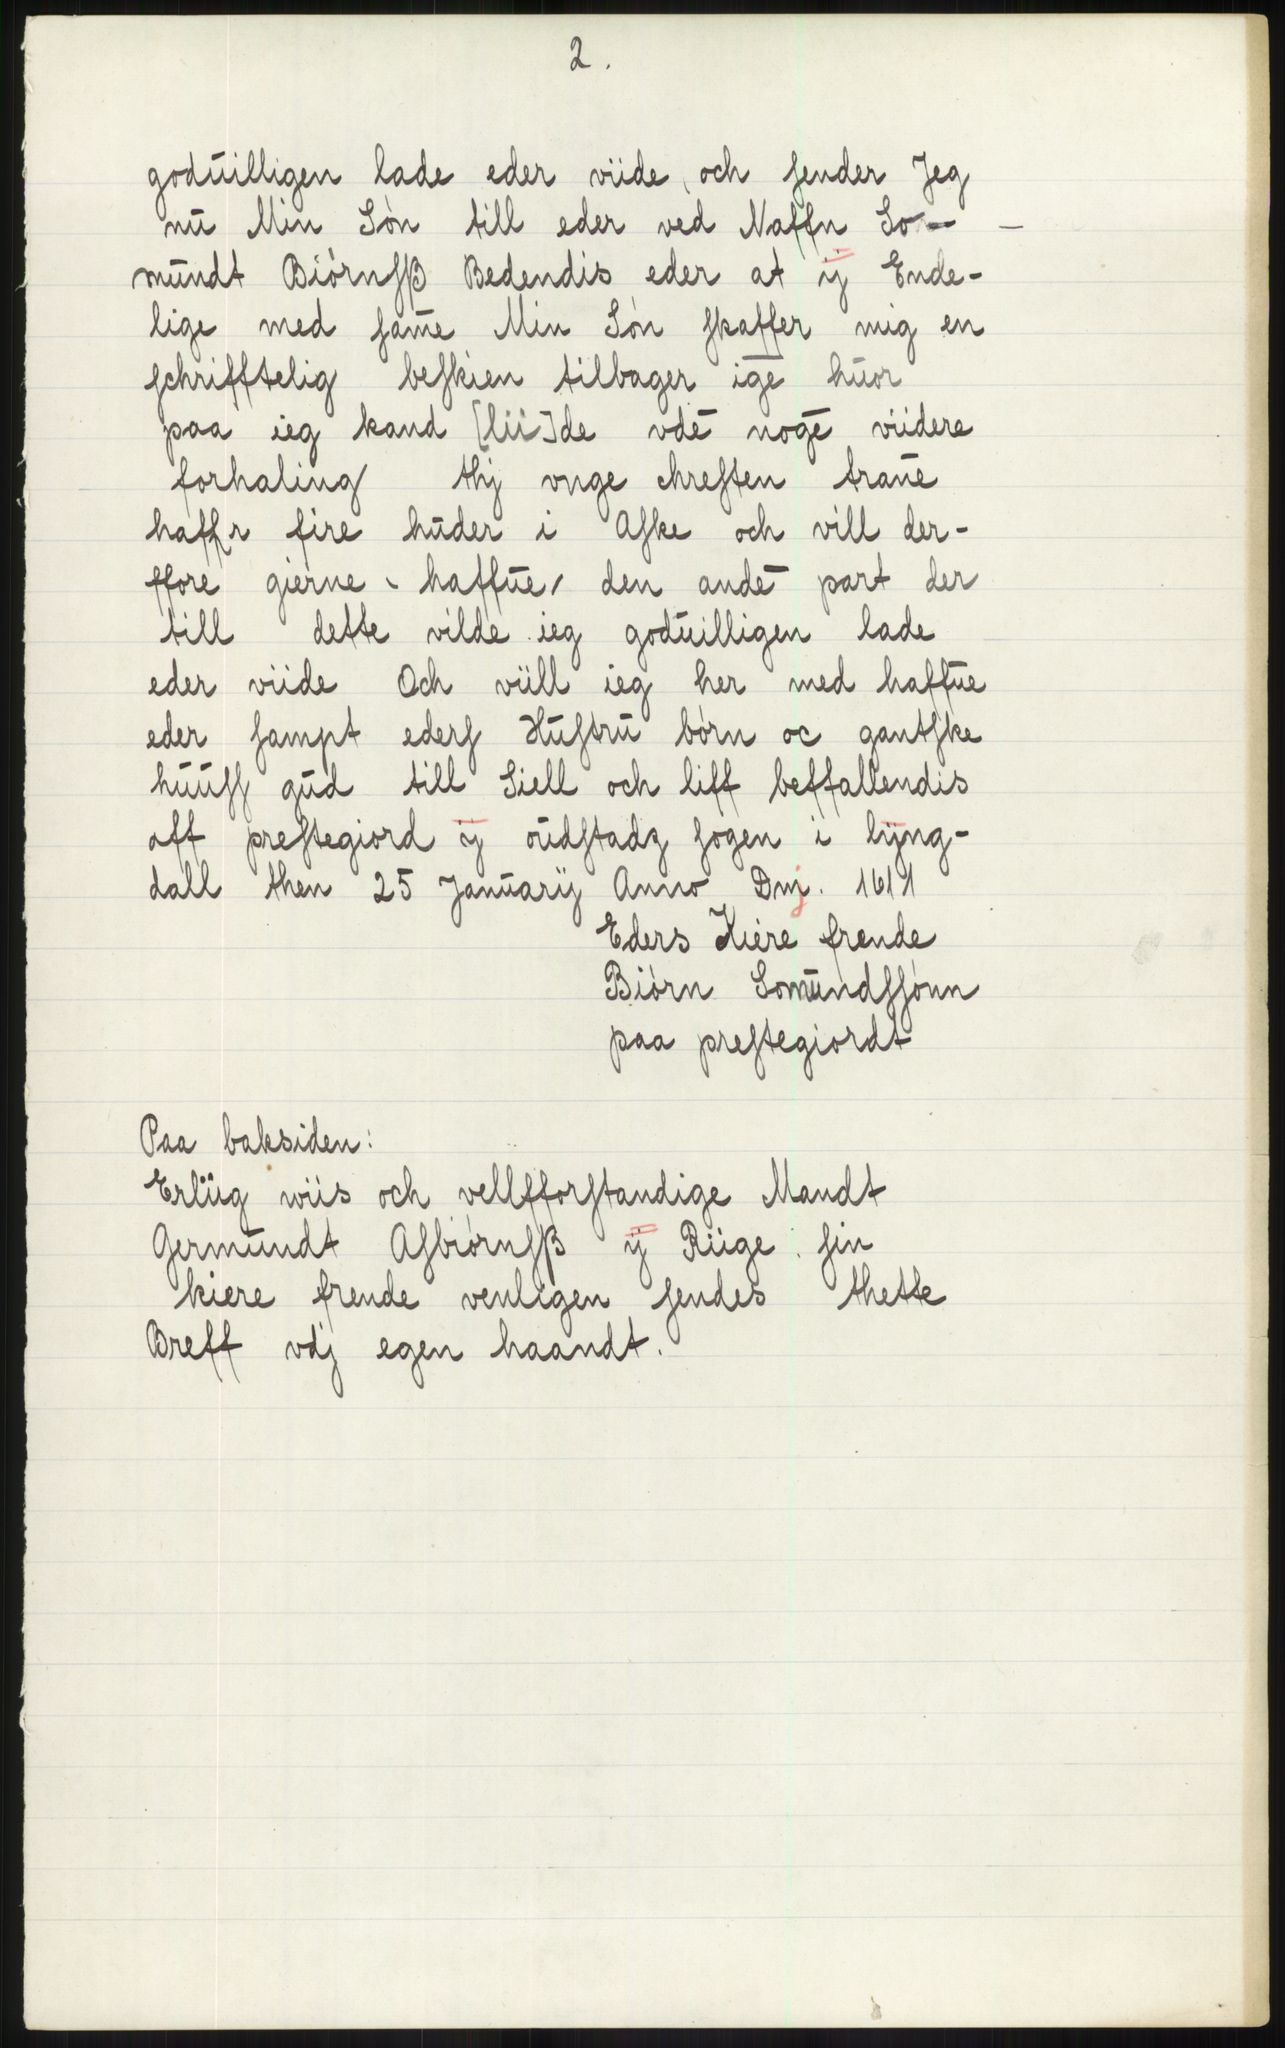 2.
godūilligen lade eder viide, och sender Jeg
nū Min Sön till eder ved Naffn So-
mūndt Biörnsß Bedendis eder at ij Ende-
lige med same̅ Min Sön skaffer mig en
schrifftelig beskien tilbager ige̅ hūor
paa ieg kand [lii]de vde̅ noge̅ viidere
forhaling thj vnge chresten trane̅
haffr fire hūder i Aske och vill der-
ffore gierne haffūe den ande̅ part der
till dette vilde ieg godūilligen lade
eder viide Och viill ieg her med haffūe
eder sampt eders Hūstrū börn oc gantske
hūūss gūd till Siell och liff beffallendis
aff prestegiord ij oūdstadz sogen i lijng-
dall then 25 Janūarij Anno Dnj. 1611
Eders Kiere frende
Biörn Somūndssönn
paa prestegiordt
Paa baksiden:
Erliig wiis och vellfforstandige Mandt
Germūndt Asbiörnsß ij Riige sin
kiere frende venligen sendes thette
Breff vdj egen haandt.